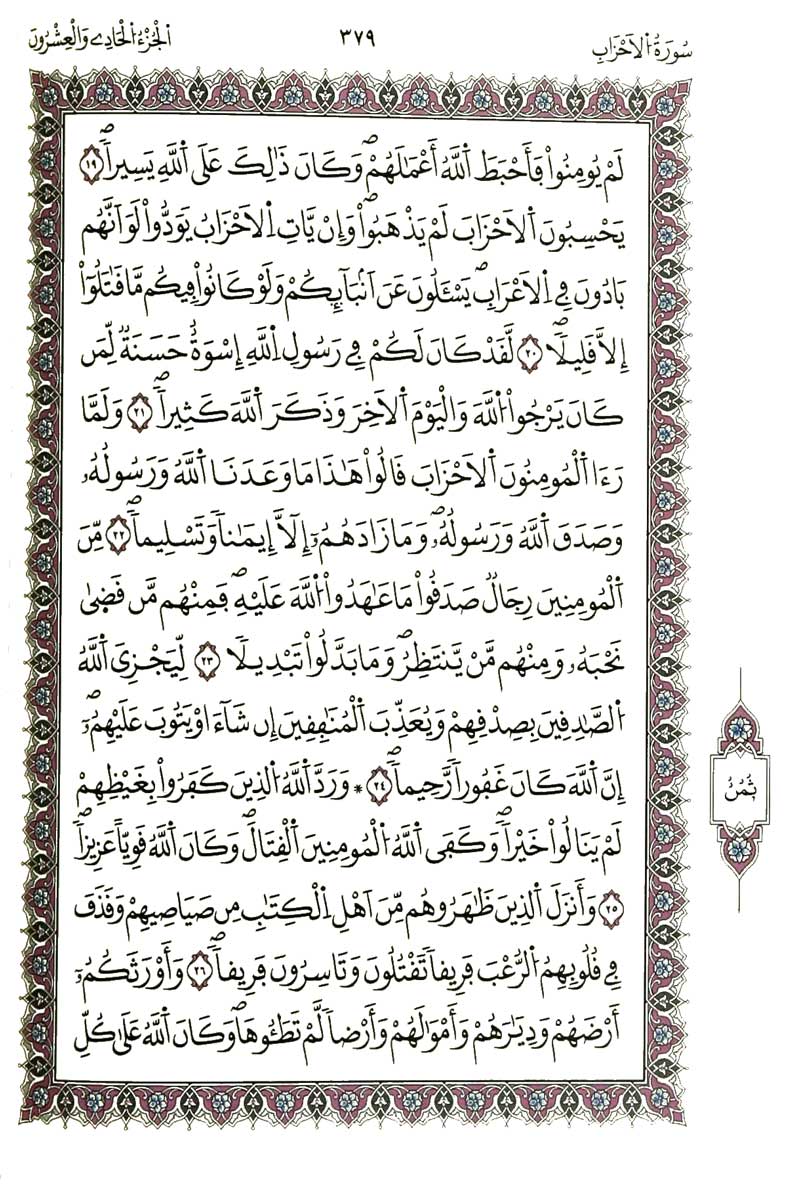 سُورَةُ الَاحْزَابِ
٣٧٩
الجُزْءُ الحَادِي وَالْعِشْرُونَ
لَمْ يُومِنُواْ فَأَحْبَطَ اَ۬للَّهُ أَعْمَٰلَهُمْۖ وَكَانَ ذَٰلِكَ عَلَى اَ۬للَّهِ يَسِيراٗۖ ١٩
يَحْسِبُونَ اَ۬لَاحْزَابَ لَمْ يَذْهَبُواْۖ وَإِنْ يَّاتِ اِ۬لَاحْزَابُ يَوَدُّواْ لَوَ اَنَّهُم
بَادُونَ فِے اِ۬لَاعْرَابِۖ يَسْـَٔلُونَ عَنَ اَنۢبَآئِكُمْ وَلَوْ كَانُواْ فِيكُم مَّا قَٰتَلُوٓاْ
إِلَّا قَلِيلاٗۖ ٢٠ لَّقَدْ كَانَ لَكُمْ فِے رَسُولِ اِ۬للَّهِ إِسْوَةٌ حَسَنَةٞ لِّمَن
كَانَ يَرْجُواْ اُ۬للَّهَ وَالْيَوْمَ اَ۬لَاخِرَ وَذَكَرَ اَ۬للَّهَ كَثِيراٗۖ ٢١ وَلَمَّا
رَءَا اَ۬لْمُومِنُونَ اَ۬لَاحْزَابَ قَالُواْ هَٰذَا مَا وَعَدَنَا اَ۬للَّهُ وَرَسُولُهُۥ
وَصَدَقَ اَ۬للَّهُ وَرَسُولُهُۥۖ وَمَا زَادَهُمُۥٓ إِلَّآ إِيمَٰناٗ وَتَسْلِيماٗۖ ٢٢ مِّنَ
اَ۬لْمُومِنِينَ رِجَالٞ صَدَقُواْ مَا عَٰهَدُواْ اُ۬للَّهَ عَلَيْهِۖ فَمِنْهُم مَّن قَضَىٰ
نَحْبَهُۥ وَمِنْهُم مَّنْ يَّنتَظِرُۖ وَمَا بَدَّلُواْ تَبْدِيلاٗ ٢٣ لِّيَجْزِيَ اَ۬للَّهُ
اُ۬لصَّٰدِقِينَ بِصِدْقِهِمْ وَيُعَذِّبَ اَ۬لْمُنَٰفِقِينَ إِن شَآءَ اَوْ يَتُوبَ عَلَيْهِمُۥٓۖ
إِنَّ اَ۬للَّهَ كَانَ غَفُوراٗ رَّحِيماٗۖ ٢٤ * وَرَدَّ اَ۬للَّهُ اُ۬لذِينَ كَفَرُواْ بِغَيْظِهِمْ
لَمْ يَنَالُواْ خَيْراٗۖ وَكَفَى اَ۬للَّهُ اُ۬لْمُومِنِينَ اَ۬لْقِتَالَۖ وَكَانَ اَ۬للَّهُ قَوِيّاً عَزِيزاٗۖ
٢٥ وَأَنزَلَ اَ۬لذِينَ ظَٰهَرُوهُم مِّنَ اَهْلِ اِ۬لْكِتَٰبِ مِن صَيَاصِيهِمْ وَقَذَفَ
فِے قُلُوبِهِمُ اُ۬لرُّعْبَ فَرِيقاٗ تَقْتُلُونَ وَتَاسِرُونَ فَرِيقاٗۖ ٢٦ وَأَوْرَثَكُمُۥٓ
أَرْضَهُمْ وَدِيَٰرَهُمْ وَأَمْوَٰلَهُمْ وَأَرْضاٗ لَّمْ تَطَـُٔوهَاۖ وَكَانَ اَ۬للَّهُ عَلَىٰ كُلِّ
ثُمُنُ